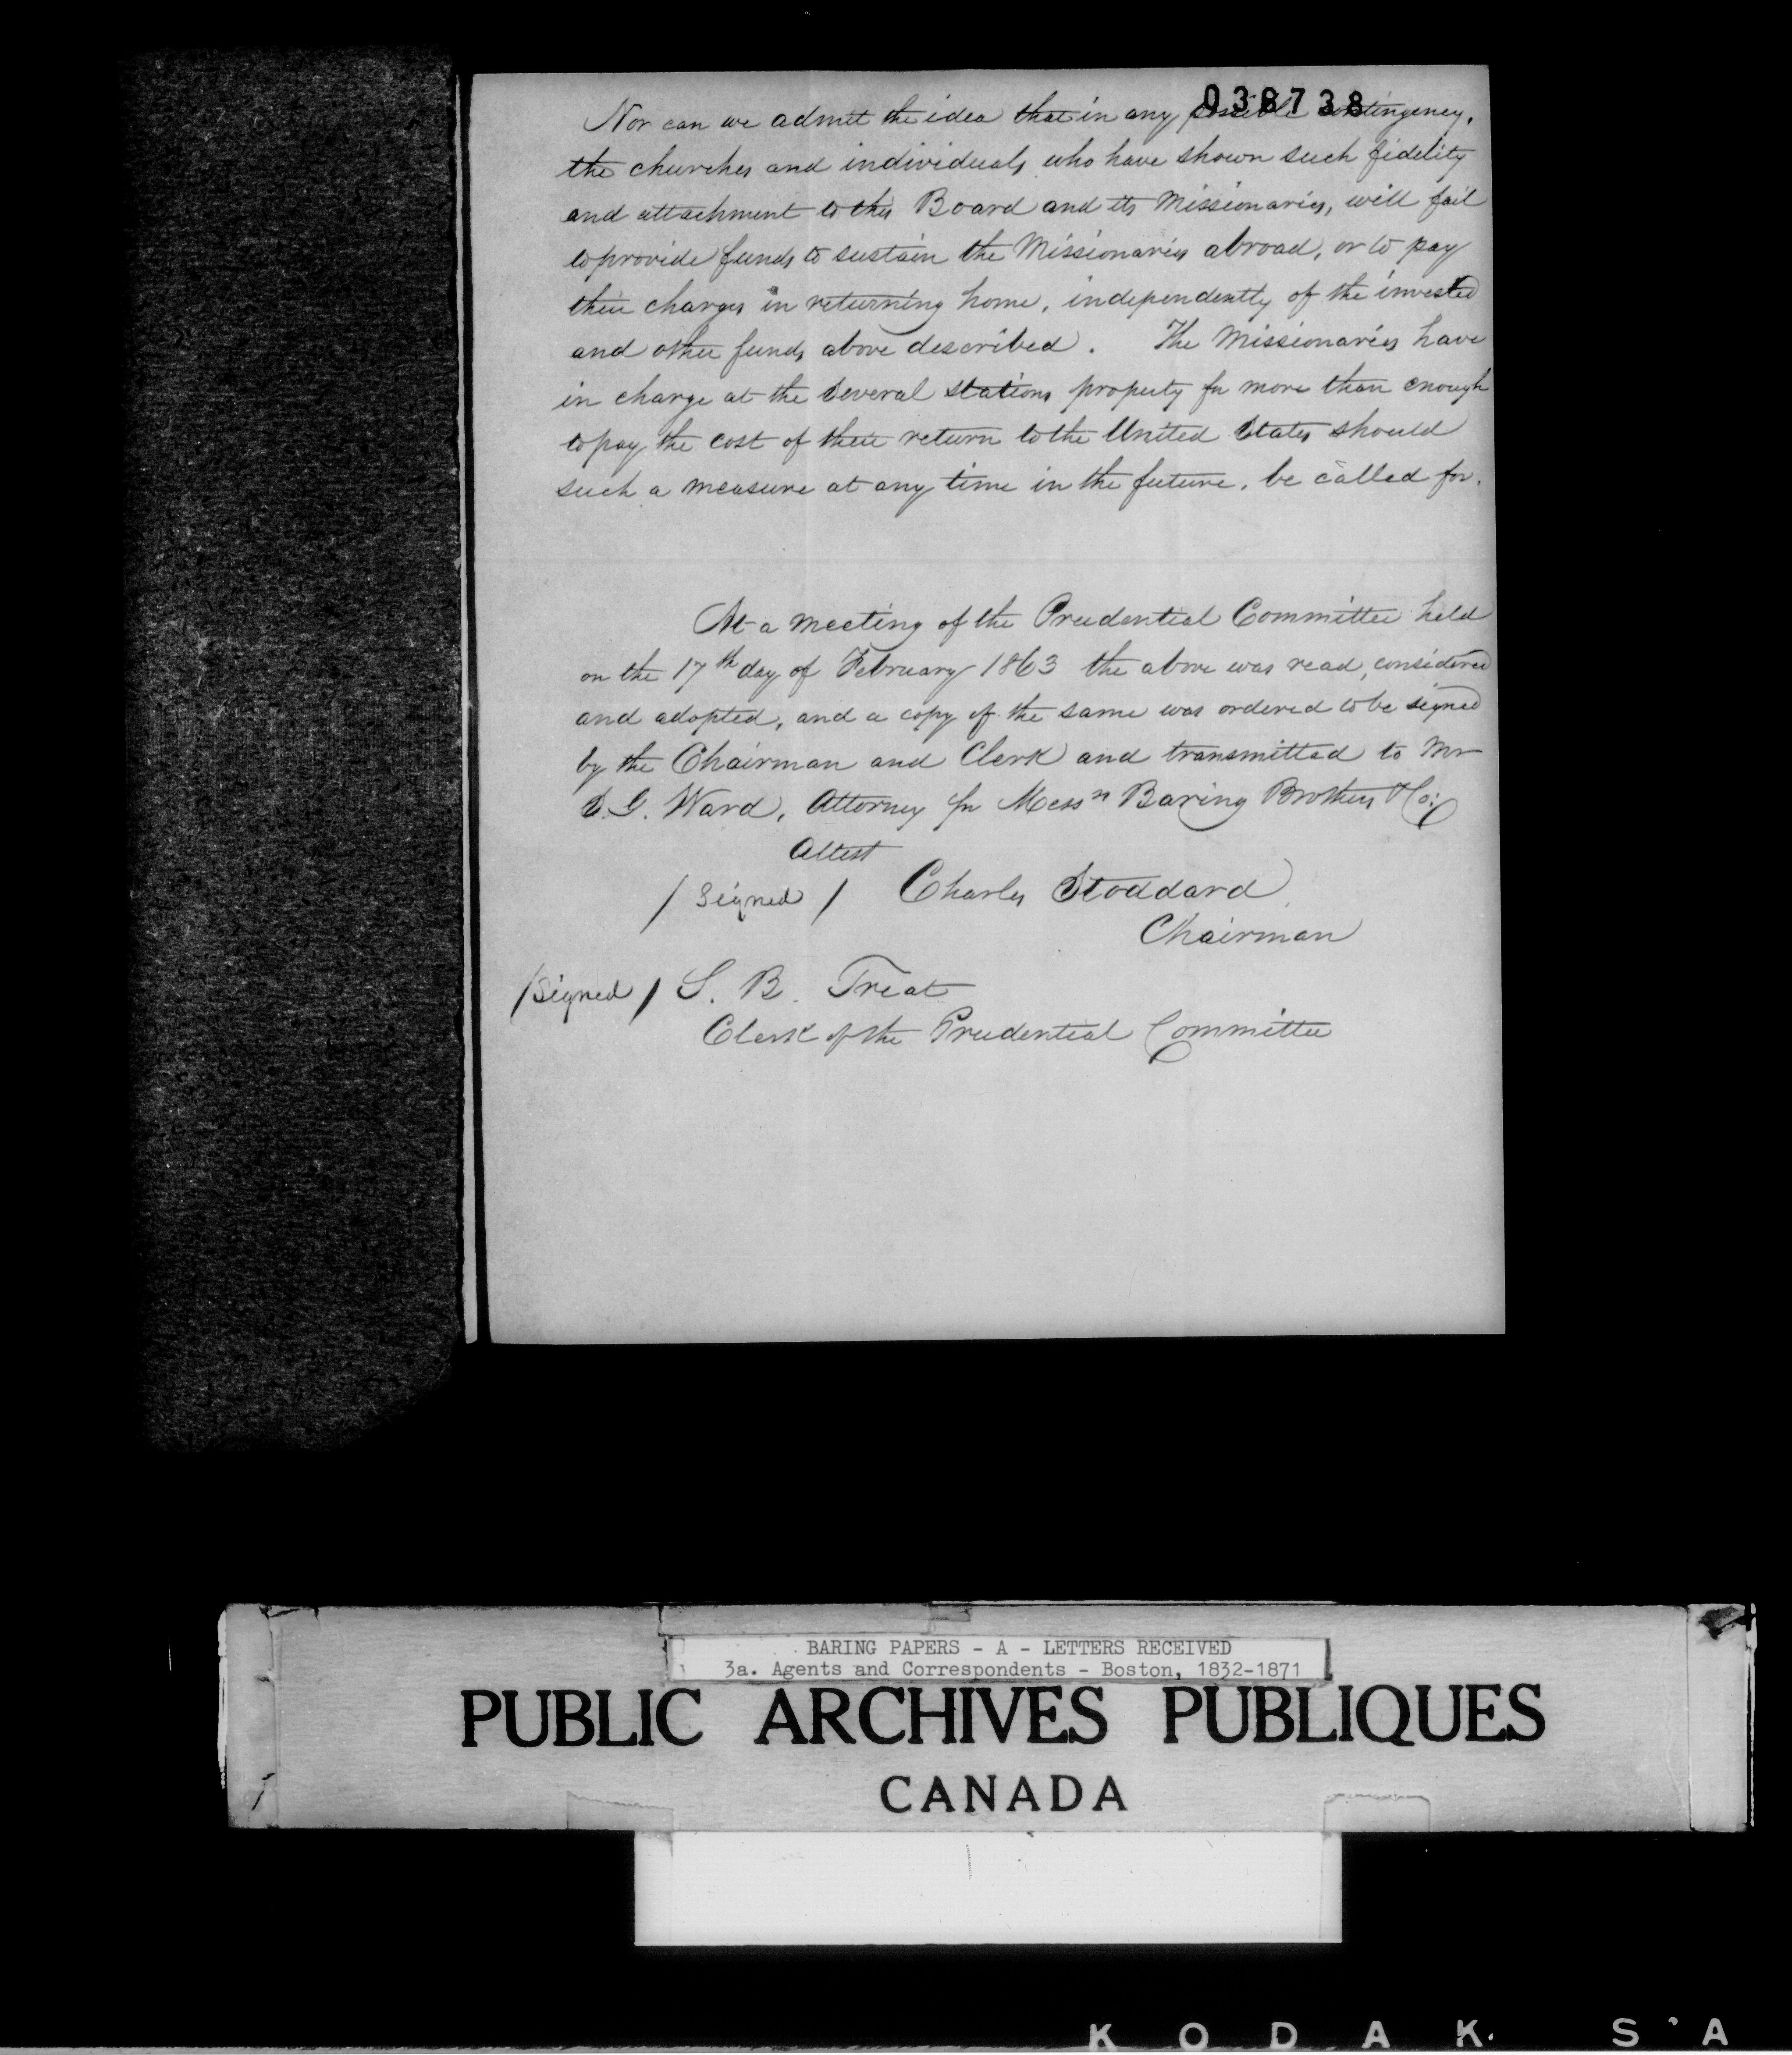 038738
Nor can we admit the idea that in any possible contingency,
the churches and individuals who have shown such fidelity
and attachment to this Board and its Missionaries, will fail
to provide funds to sustain the Missionaries abroad, or to pay
their charges in returning home, independently of the invested
and other funds above described. The Missionaries have
in charge at the several stations property far more than enough
to pay the cost of their return to the United States should
such a measure at any time in the future, be called for.
At a meeting of the Prudential Committee held
on the 17th day of February 1863 the above was read, considered
and adopted, and a copy of the same was ordered to be signed
by the Chairman and Clerk and transmitted to Mr
S. G. Ward, Attorney for Messrs Baring Brothers & Co:
Attest
/ Signed / Charles Stoddard
Chairman
/ Signed / S. B. Treat
Clerk of the Prudential Committee
BARING PAPERS - A - LETTERS RECEIVED
3a. Agents and Correspondents - Boston, 1832-1871
PUBLIC ARCHIVES PUBLIQUES
CANADA
KODAK S'A